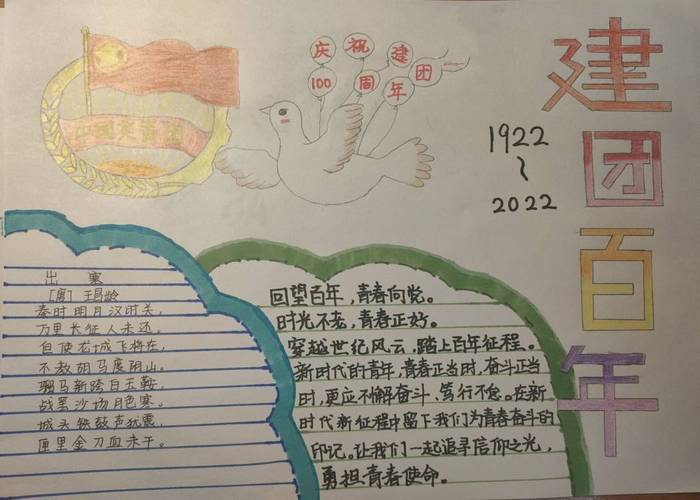 中国共青团
庆祝建团一
100周年
建团百年
1922
~
2022
出 塞
[唐] 王昌龄
秦时明月汉时关,
万里长征人未还。
但使龙城飞将在,
不教胡马度阴山。
骝马新跨白玉鞍,
战罢沙场月色寒。
城头铁鼓声犹震,
匣里金刀血未干。
回望百年,青春向党。
时光不老,青春正好。
穿越世纪风云,踏上百年征程。
新时代的青年,青春正当时,奋斗正当
时,更应不懈奋斗、笃行不怠。在新
时代新征程中留下我们为青春奋斗的
印记。让我们一起追寻信仰之光,
勇担青春使命。